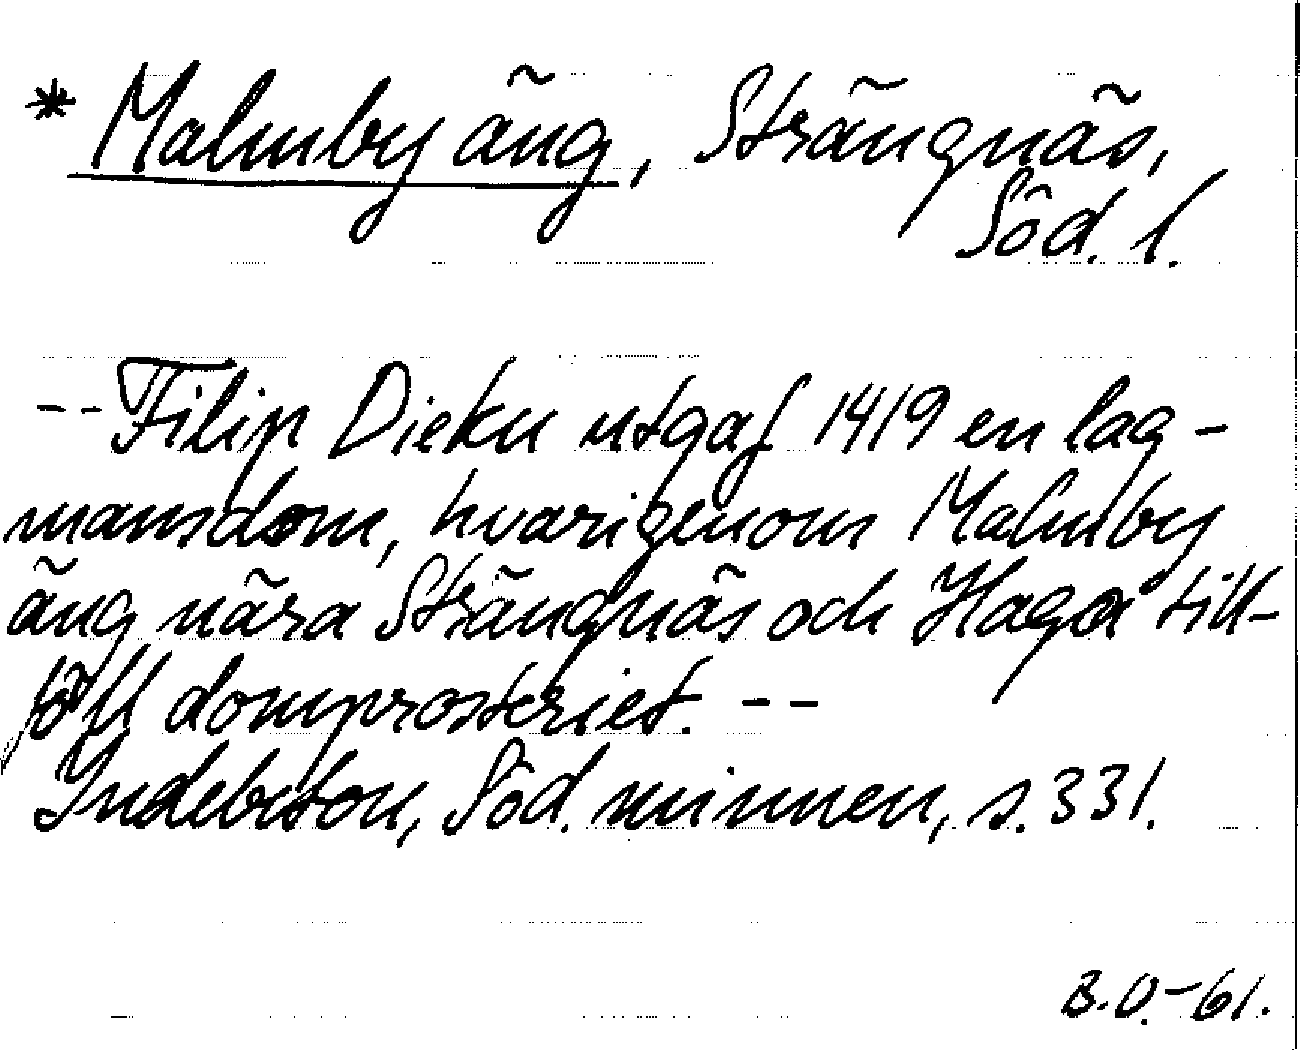 * Malmby äng, Strängnäs,
Söd. l.
-- Filip Dieku utgaf 1419 en lag-
mansdom, hvarigenom Malmby
äng nära Strängnäs och Haga till-
föll domprosteriet. --
Indebetou, Söd. minnen, s. 331.
B.O.-61.